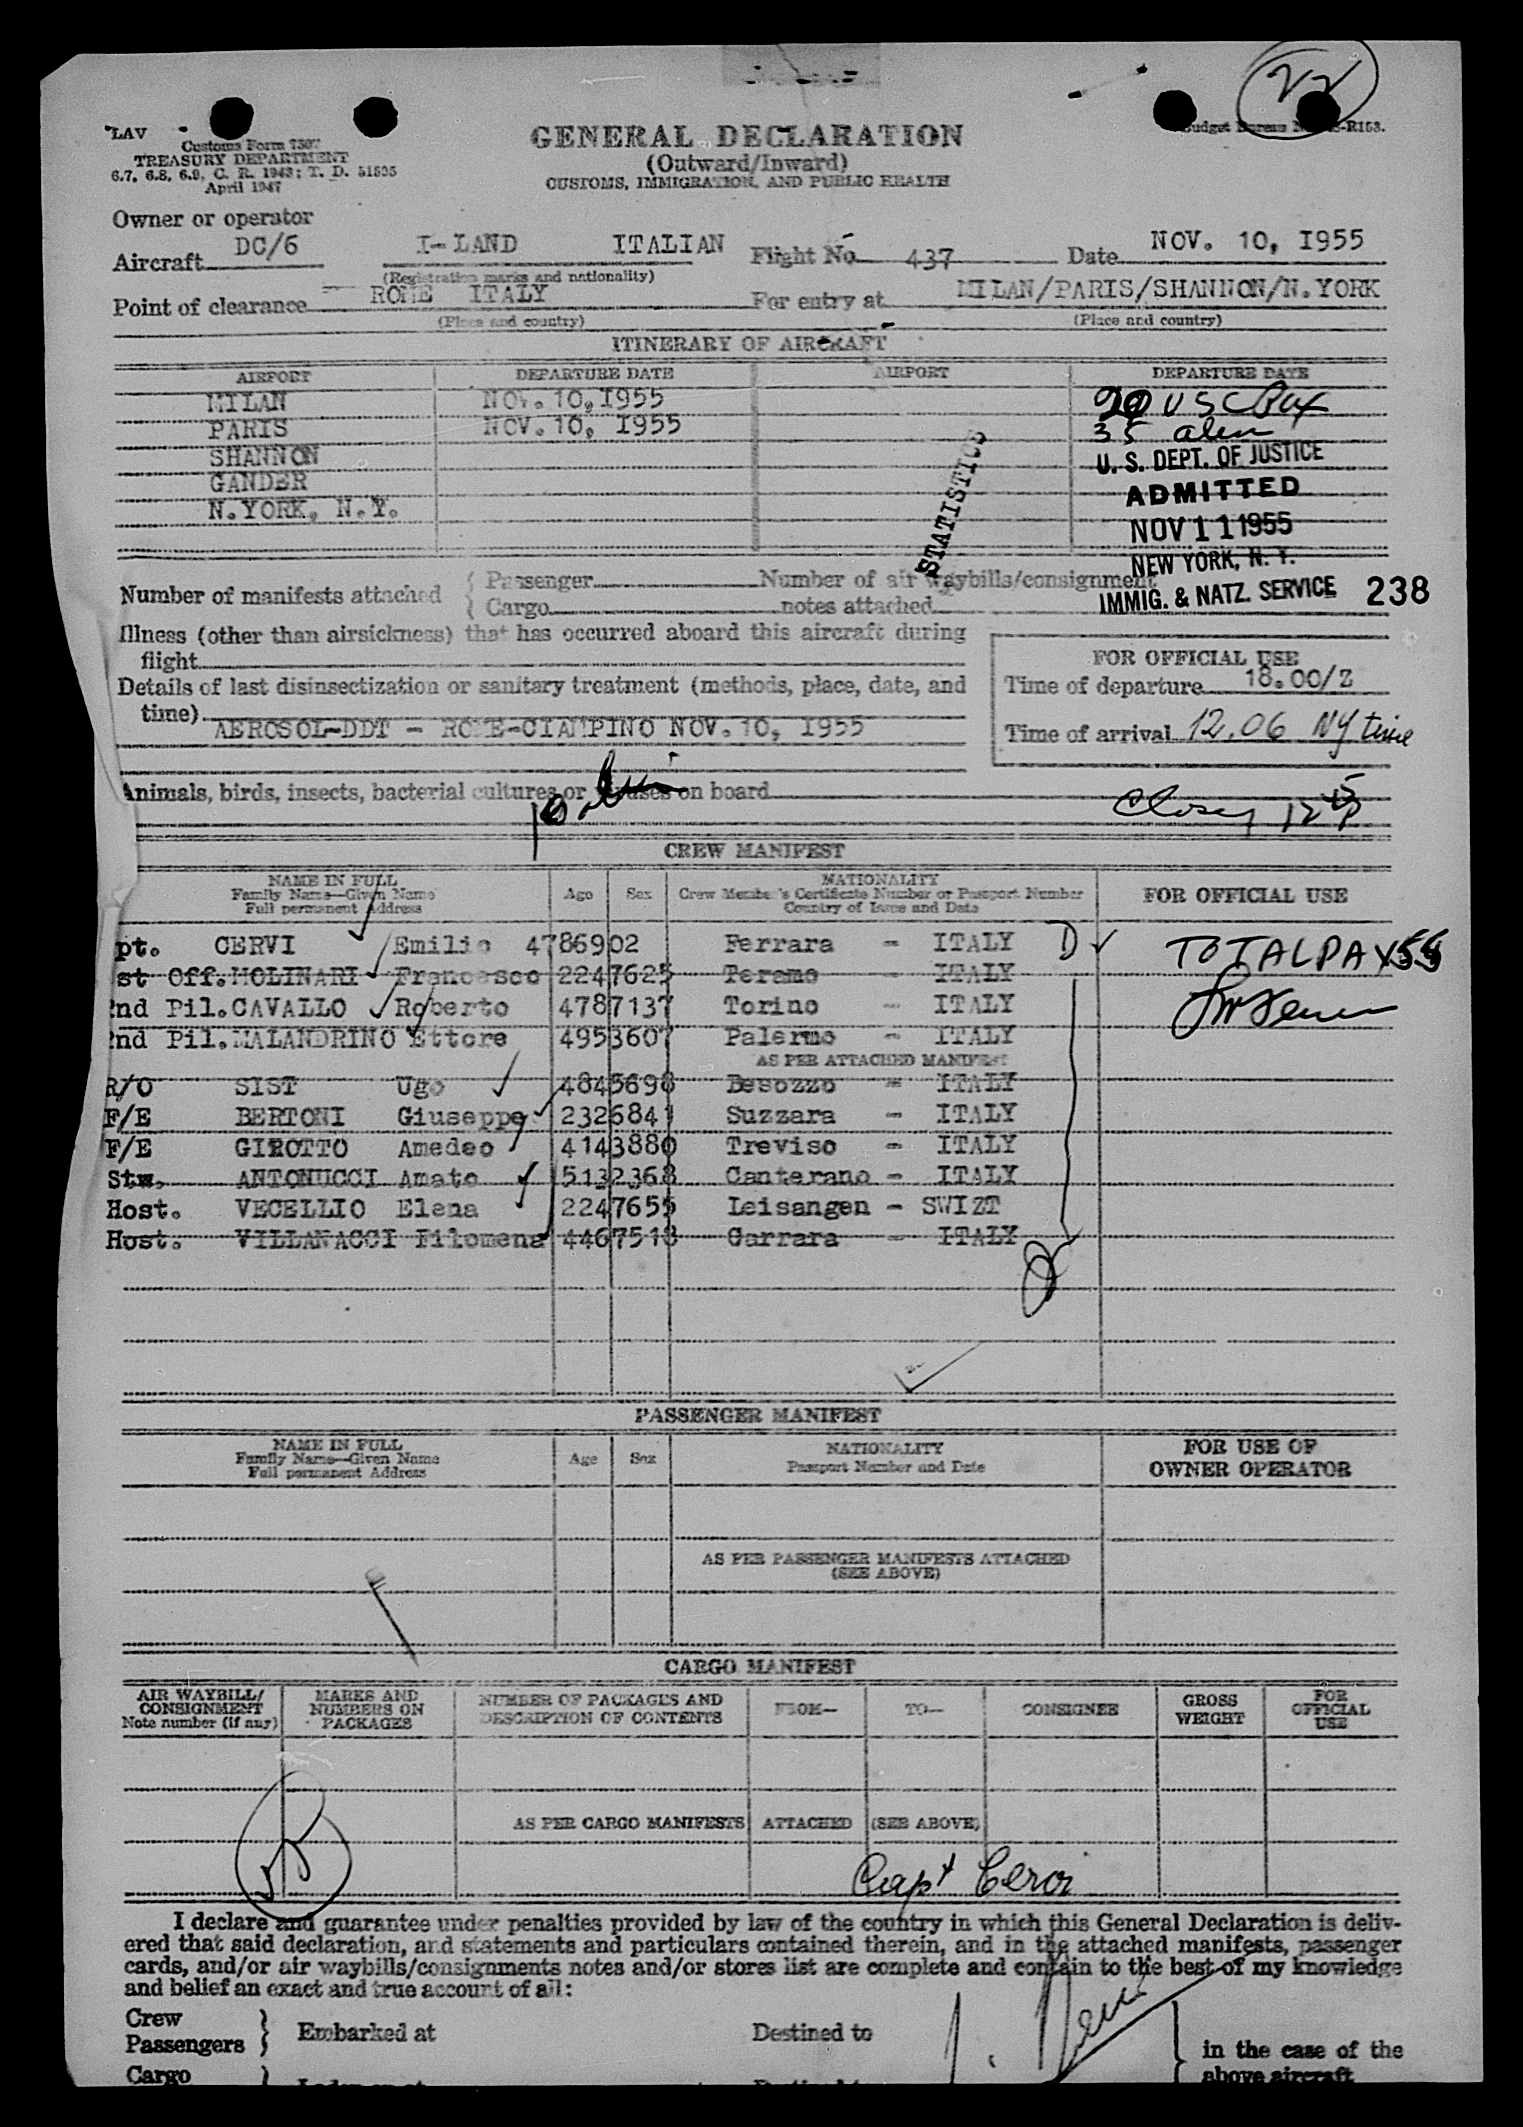 22
"LAV
Customs Form 7507
TREASURY DEPARTMENT
6.7, 6.8, 6.9, C. R. 1943; T. D. 51535
April 1947
GENERAL DECLARATION
(Outward/Inward)
CUSTOMS, IMMIGRATION, AND PUBLIC HEALTH
Budget Bureau No. -R153.
Owner or operator
Aircraft DC/6 I-LAND ITALIAN Flight No. 437 Date NOV. 10, I955
(Registration marks and nationality)
Point of clearance ROME ITALY For entry at MILAN/PARIS/SHANNON/N.YORK
(Place and country) (Place and country)
ITINERARY OF AIRCRAFT
AIRPORT DEPARTURE DATE AIRPORT DEPARTURE DATE
MILAN NOV. 10, I955
PARIS NOV. 10, I955
SHANNON
GANDER
N.YORK, N.Y.
20 USC Pax
35 alien
STATISTICS
U. S. DEPT. OF JUSTICE
ADMITTED
NOV 11 1955
NEW YORK, N. Y.
IMMIG. & NATZ. SERVICE 238
Number of manifests attached { Passenger Number of air waybills/consignment
{ Cargo notes attached
Illness (other than airsickness) that has occurred aboard this aircraft during
flight
Details of last disinsectization or sanitary treatment (methods, place, date, and
time)
AEROSOL-DDT - ROME-CIAMPINO NOV. 10, I955
FOR OFFICIAL USE
Time of departure 18.00/Z
Time of arrival 12.06 NY time
Animals, birds, insects, bacterial cultures or viruses on board
10
12 45 P
CREW MANIFEST
NAME IN FULL
Family Name—Given Name
Full permanent Address
Age Sex
NATIONALITY
Crew Member's Certificate Number or Passport Number
Country of Issue and Date
FOR OFFICIAL USE
pt. CERVI Emilio 4786902 Ferrara - ITALY D
st Off. MOLINARI Francesco 2247625 Teramo - ITALY
2nd Pil. CAVALLO Roberto 4787137 Torino - ITALY
2nd Pil. MALANDRINO Ettore 4953607 Palermo - ITALY
AS PER ATTACHED MANIFEST
R/O SIST Ugo 4845698 Besozzo - ITALY
F/E BERTONI Giuseppe 2326841 Suzzara - ITALY
F/E GIROTTO Amedeo 4143880 Treviso - ITALY
Stw. ANTONUCCI Amato 5132368 Canterano - ITALY
Host. VECELLIO Elena 2247655 Leisangen - SWIZT
Host. VILLANACCI Filomena 4467518 Carrara - ITALY
TOTAL PAX 55
PASSENGER MANIFEST
NAME IN FULL
Family Name—Given Name
Full permanent Address
Age Sex
NATIONALITY
Passport Number and Date
FOR USE OF
OWNER OPERATOR
AS PER PASSENGER MANIFESTS ATTACHED
(SEE ABOVE)
CARGO MANIFEST
AIR WAYBILL/
CONSIGNMENT
Note number (if any)
MARKS AND
NUMBERS ON
PACKAGES
NUMBER OF PACKAGES AND
DESCRIPTION OF CONTENTS
FROM—
TO—
CONSIGNEE
GROSS
WEIGHT
FOR
OFFICIAL
USE
AS PER CARGO MANIFESTS ATTACHED (SEE ABOVE)
Capt Cervi
I declare and guarantee under penalties provided by law of the country in which this General Declaration is deliv-
ered that said declaration, and statements and particulars contained therein, and in the attached manifests, passenger
cards, and/or air waybills/consignments notes and/or stores list are complete and contain to the best of my knowledge
and belief an exact and true account of all:
Crew
Passengers } Embarked at Destined to } in the case of the
Cargo above aircraft